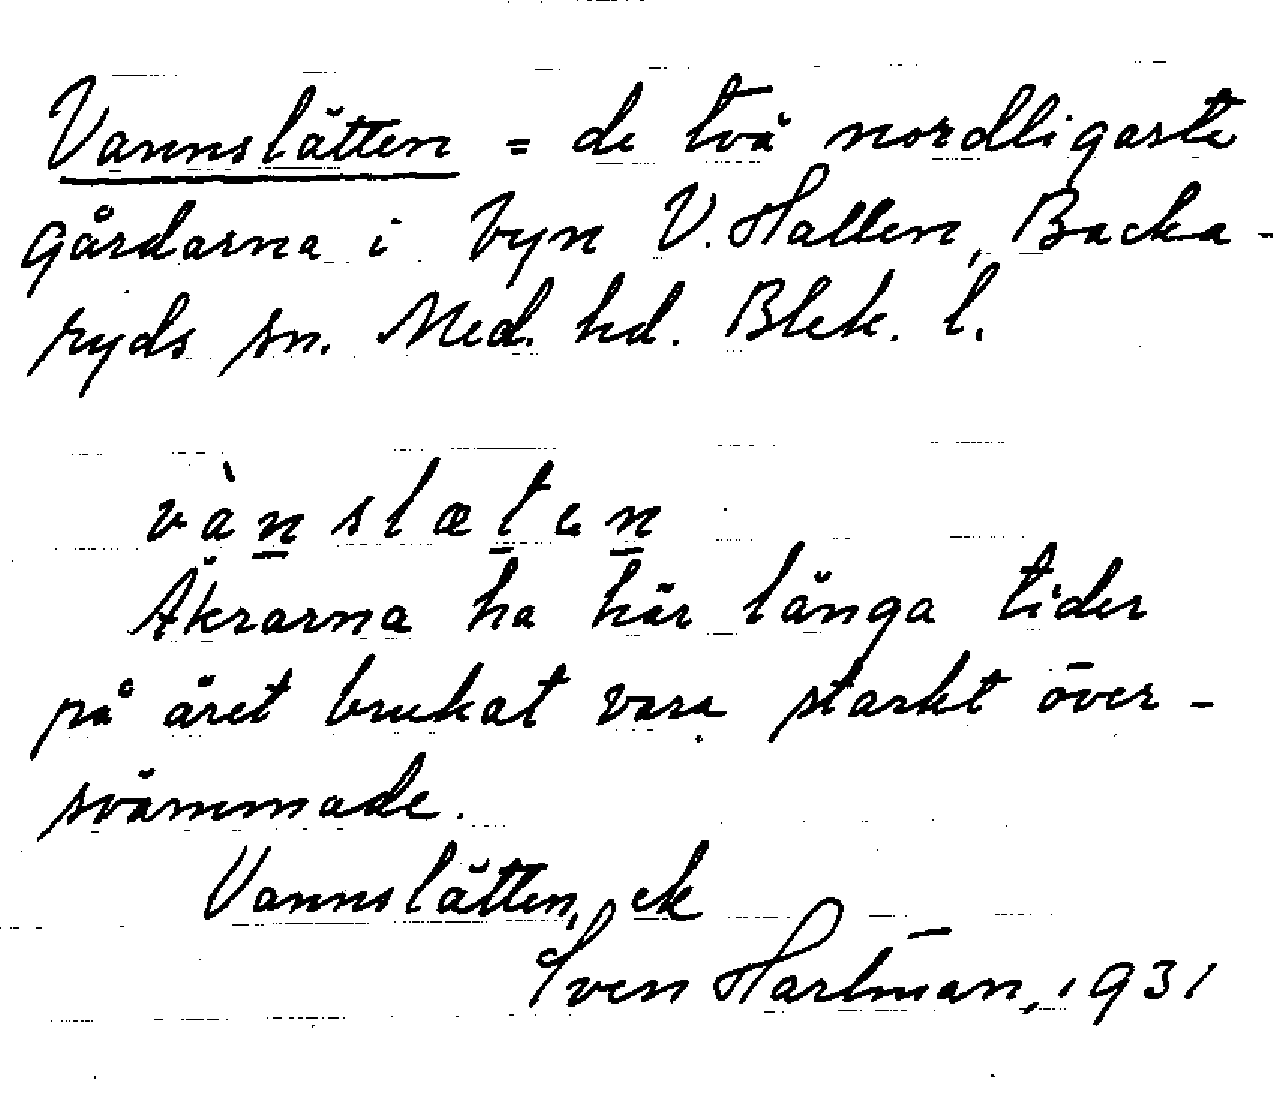 Vannslätten = de två nordligaste
gårdarna i byn V. Hallen, Backa-
ryds sn. Med. hd. Blek. l.
vànslætən
Åkrarna ha här långa tider
på året brukat vara starkt över-
svämmade.
Vannslätten, ek
Sven Hartman, 1931